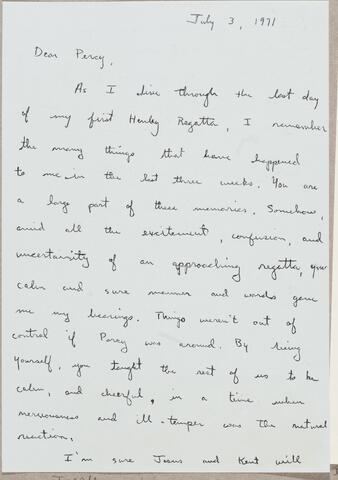 July 3, 1971
Dear Percy,
As I live through the last day
of my first Henley Regatta, I remember
the many things that have happened
to me in the last three weeks. You are
a large part of these memories. Somehow,
amid all the excitement, confusion, and
uncertainity of an approaching regatta, your
calm and sure manner and words gave
me my bearings. Things weren't out of
control if Percy was around. By being
yourself, you taught the rest of us to be
calm, and cheerful, in a time when
nervousness and ill-temper was the natural
reaction.
I'm sure Jesus and Kent will